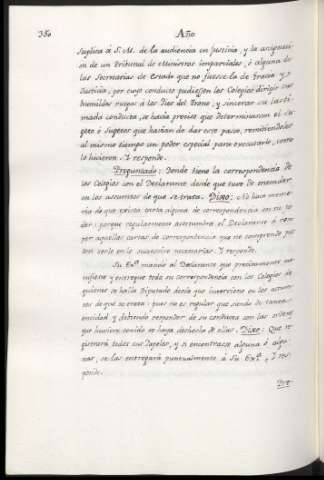 350 Año
suplica á S. M. de la audiencia en Justicia, y la asignaci-
on de un Tribunal de Ministros imparciales, ó alguna de
las Secretarias de Estado que no fuese la de Gracia y
Justicia, por cuyo conducto pudiessen los Colegios dirigir sus
humildes ruegos a los Pies del Trono, y sincerar su lasti-
mada conducta, se hacia preciso que determinassen el Su-
geto ó Sugetos que havian de dar este paso, remitiendoles
al mismo tiempo un poder especial para executarlo, como
lo hicieron. Y responde.
Preguntado: Donde tiene la correspondencia de
los Colegios con el Declarante desde que tuvo de entender
en los assumtos de que se trata. Dixo: No hace memo-
ria de que exista carta alguna de correspondencia en su po-
der: porque regularmente acostumbra el Declarante á rom-
per aquellas cartas de correspondencia que no comprende pue-
den serle en lo successivo necesarias. Y responde.
Su Exª. mandó al Declarante que precisamente ma-
nifieste y entregue toda su correspondencia con los Colegios de
quienes se halla Diputado desde que intervino en los assum-
tos de que se trata: pues no es regular que siendo de tanta
entidad y debiendo responder de su conducta con las ordenes
que huviere tenido se haya deshecho de ellas. Dixo: Que re-
gistrará todos sus Papeles, y si encontrasse alguna ó algu-
nas, se las entregará puntualmente á Su Exª. Y res-
ponde.
Pre-